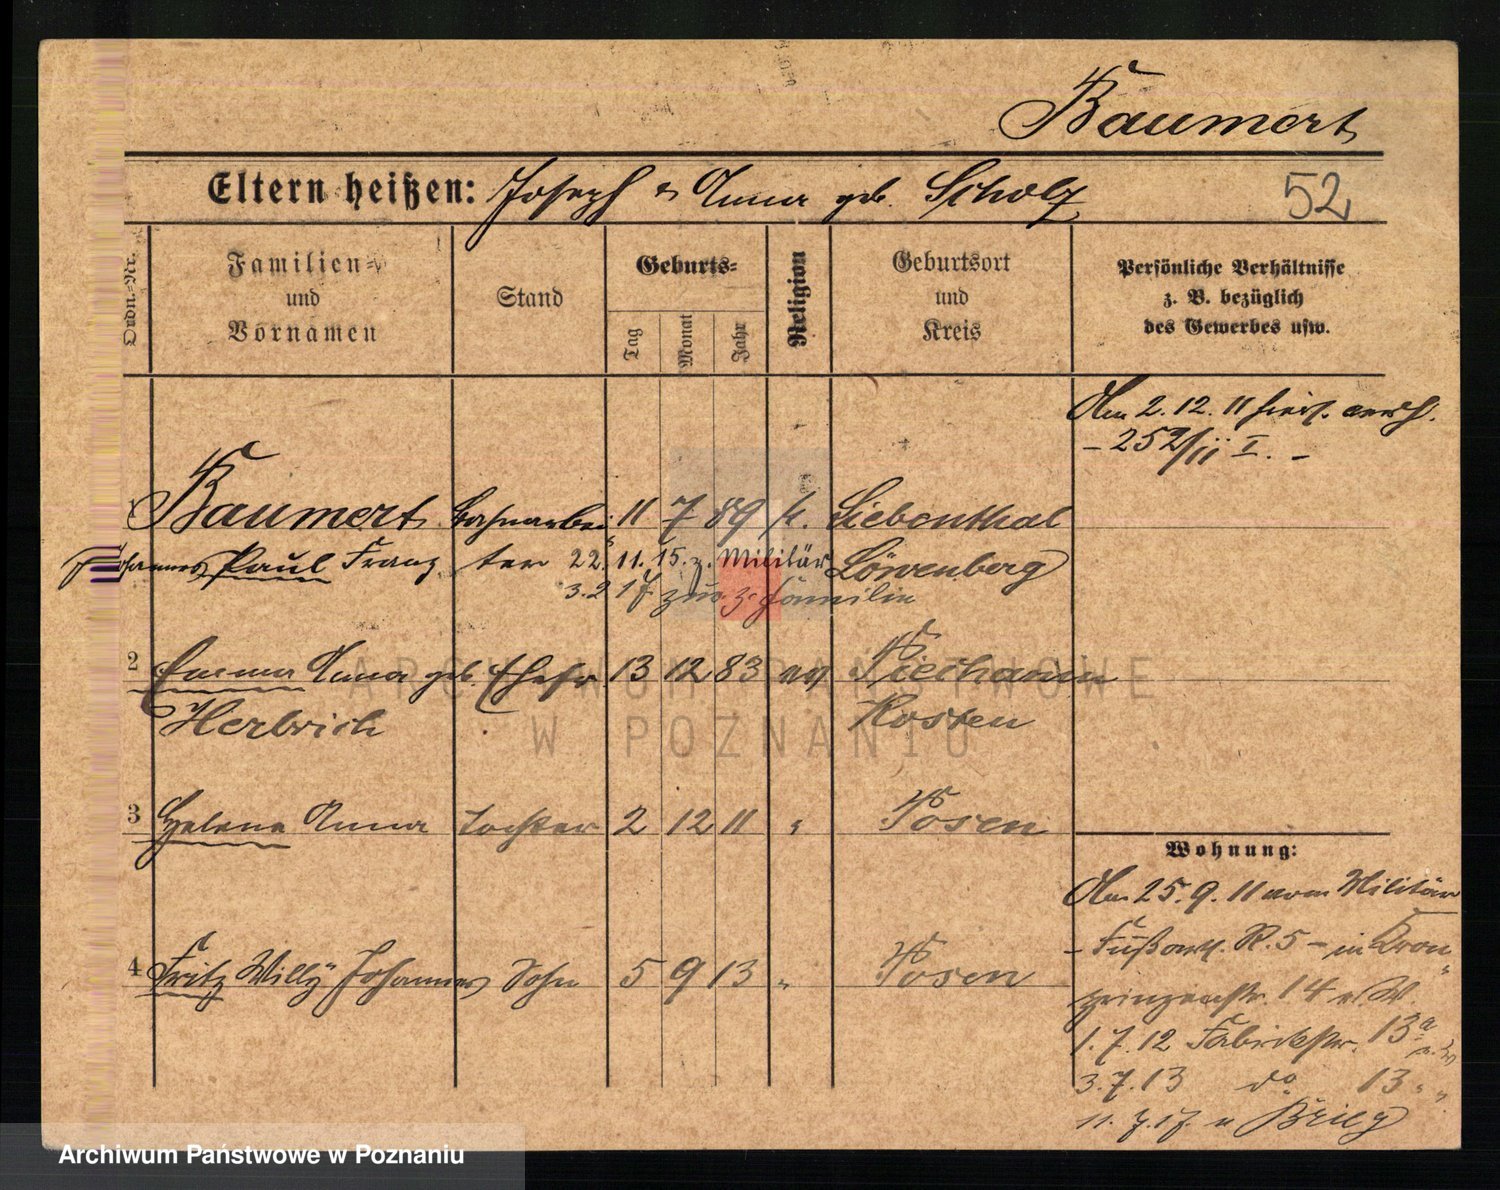 Baumert
Eltern heißen: Joseph u Anna geb. Scholz
52
Ordn.-Nr.
Familien-
und
Vornamen
Stand
Geburts-
Tag
Monat
Jahr
Religion
Geburtsort
und
Kreis
Persönliche Verhältnisse
z. B. bezüglich
des Gewerbes usw.
Am 2.12.11 hier verh.
– 252/11 I. –
1 Baumert Bahnarbei- 11 7 89 k. Liebenthal
Johannes Paul Franz ter 22.11.15. z. Militär Löwenberg
3.2 17 zur. z. Familie
2 Emma Anna geb. Ehefr. 13 12 83 ev
Herbrich Kosten
3 Helene Anna Tochter 2 12 11 " Posen
4 Fritz Willy Johannes Sohn 5 9 13 " Posen
Wohnung:
Am 25.9.11 vom Militär
– Fußart. R. 5 – in Kron
prinzenstr. 14
1.7.12 Fabrikstr. 13a
3.7.13 do 13 " "
11.7.17. n Brieg
ARCHIWUM PAŃSTWOWE
W POZNANIU
Archiwum Państwowe w Poznaniu